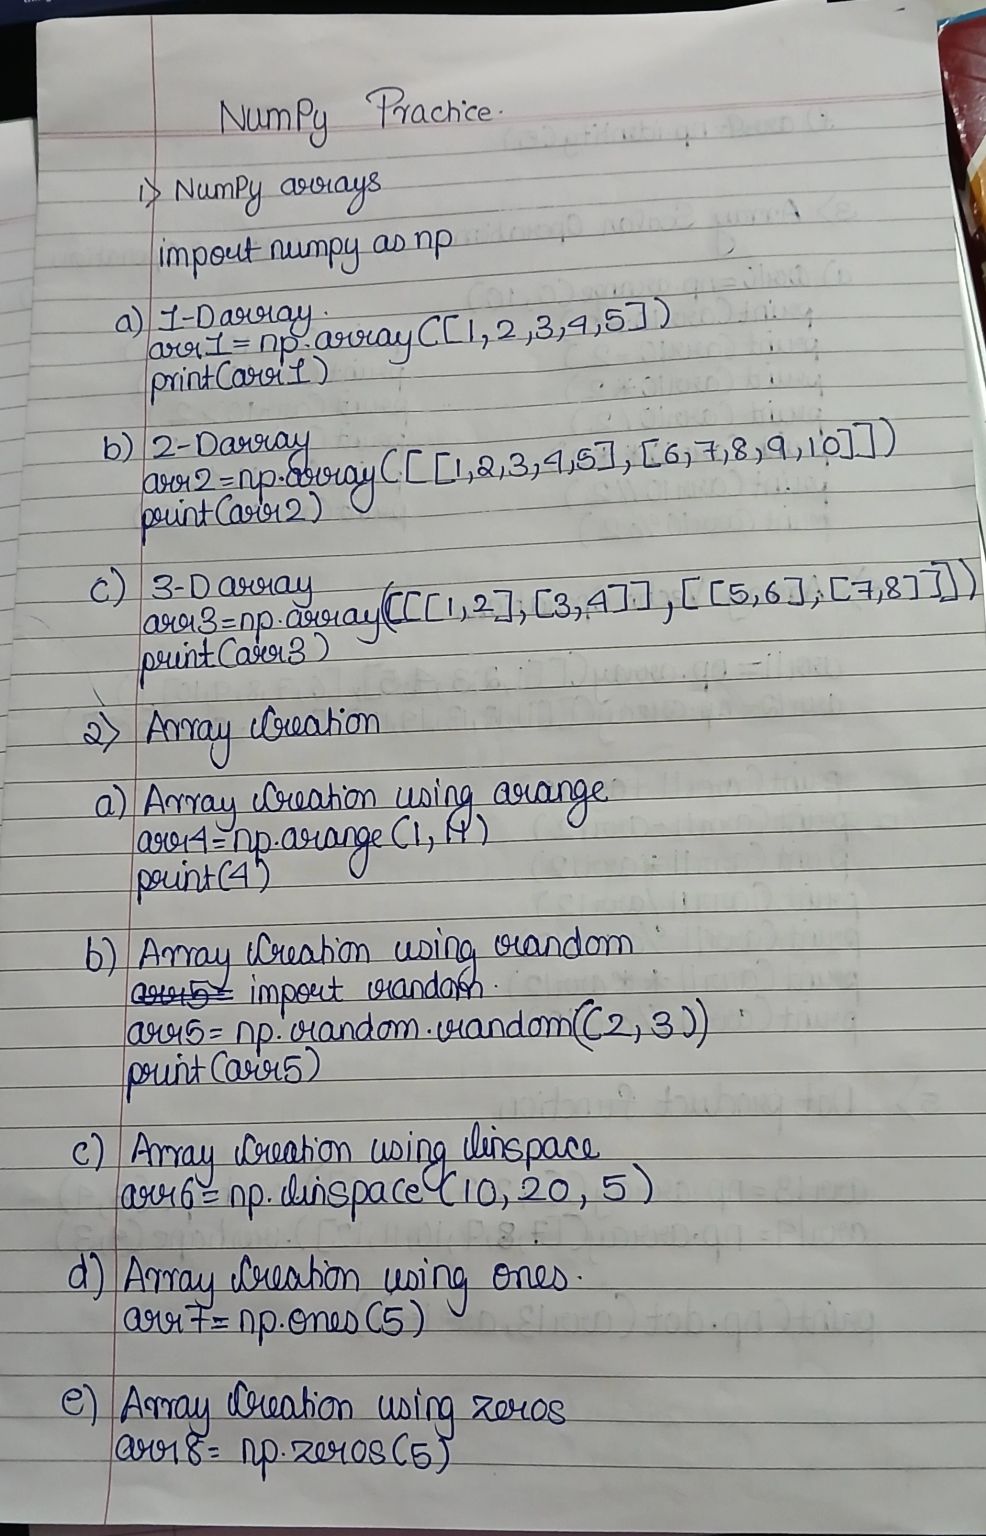 NumPy Practice.
1) NumPy arrays
import numpy as np
a) 1-D array.
arr1 = np.array([1,2,3,4,5])
print(arr1)
b) 2-D array
arr2 = np.array([[1,2,3,4,5],[6,7,8,9,10]])
print(arr2)
c) 3-D array
arr3 = np.array([[[1,2],[3,4]],[[5,6],[7,8]]])
print(arr3)
2) Array Creation
a) Array Creation using arange
arr4 = np.arange(1, 11)
print(4)
b) Array Creation using random
arr5 = import random.
arr5 = np.random.random((2,3))
print(arr5)
c) Array Creation using linspace
arr6 = np.linspace(10, 20, 5)
d) Array Creation using ones.
arr7 = np.ones(5)
e) Array Creation using zeros
arr8 = np.zeros(5)